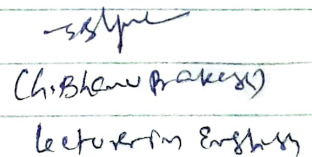 Ch. Bhanu Prakash)
Lecturer in English